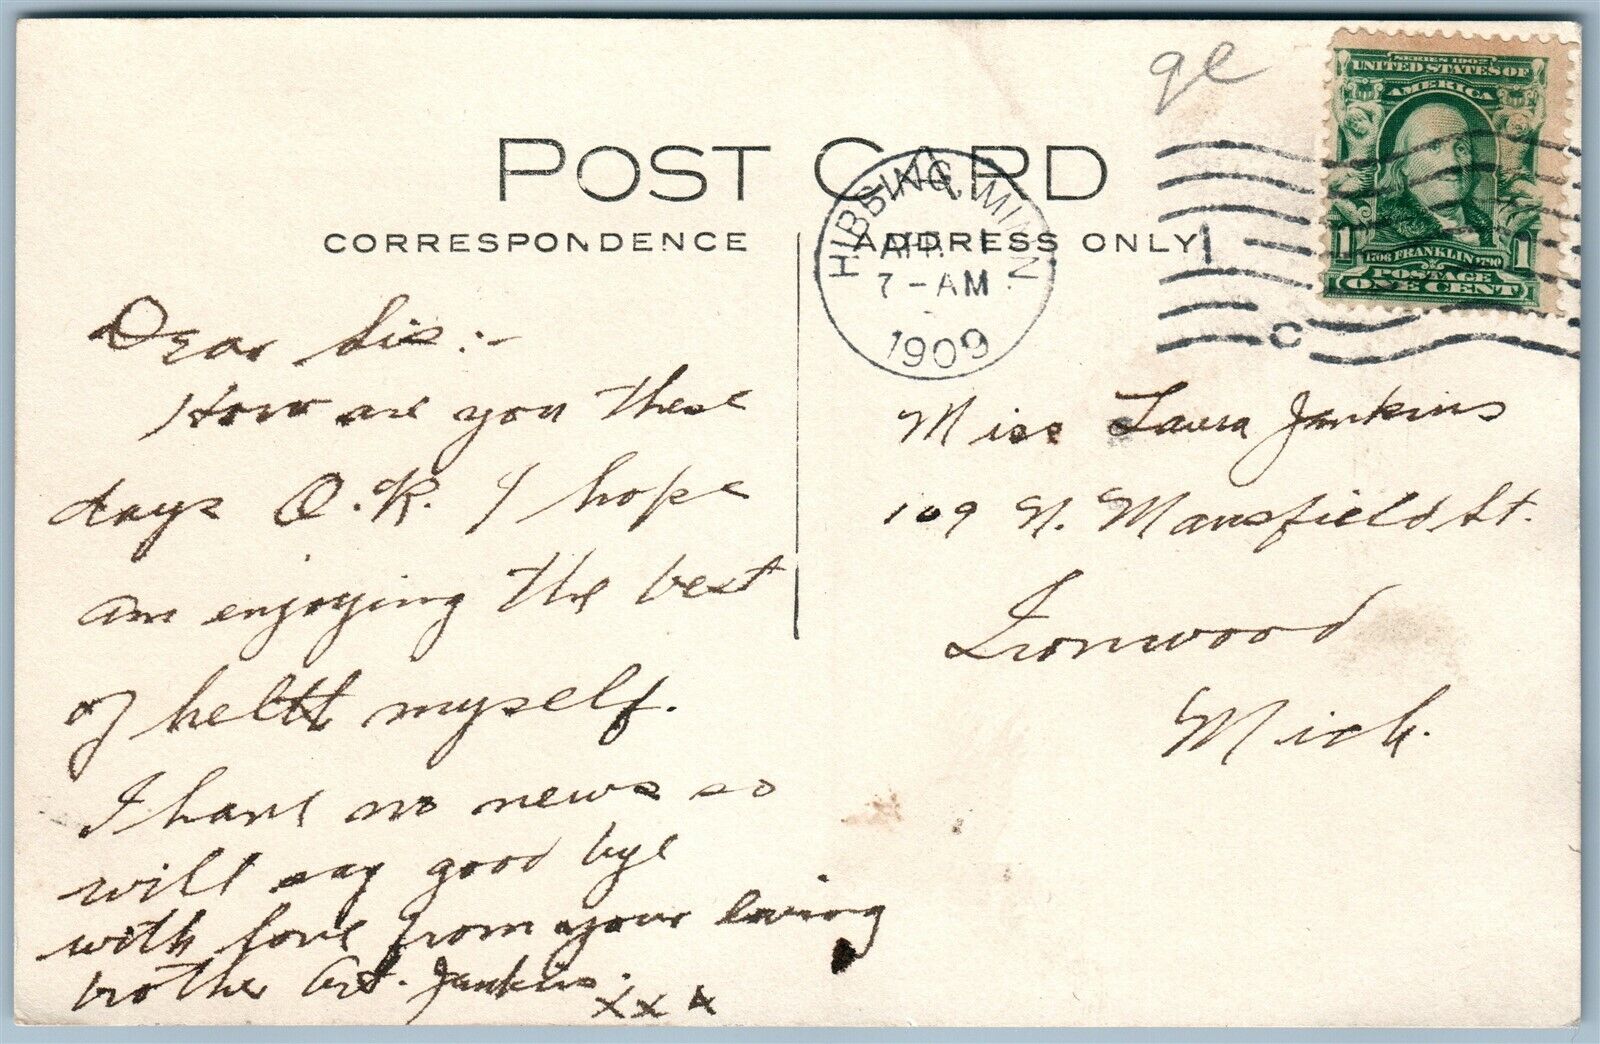 qe
SERIES 1902
UNITED STATES OF
AMERICA
1 1
1706 FRANKLIN 1790
POSTAGE
ONE CENT
POST CARD
CORRESPONDENCE
ADDRESS ONLY
HIBBING, MINN.
APR. 1
7-AM
1909
1
C
Dear Sis:-
How are you these
days O.K. I hope
am enjoying the best
of heltth myself.
I have no news so
will say good bye
with love from your loving
brother Art. Jenkins.
xxx
Miss Laura Jenkins
109 N. Mansfield St.
Ironwood
Mich.